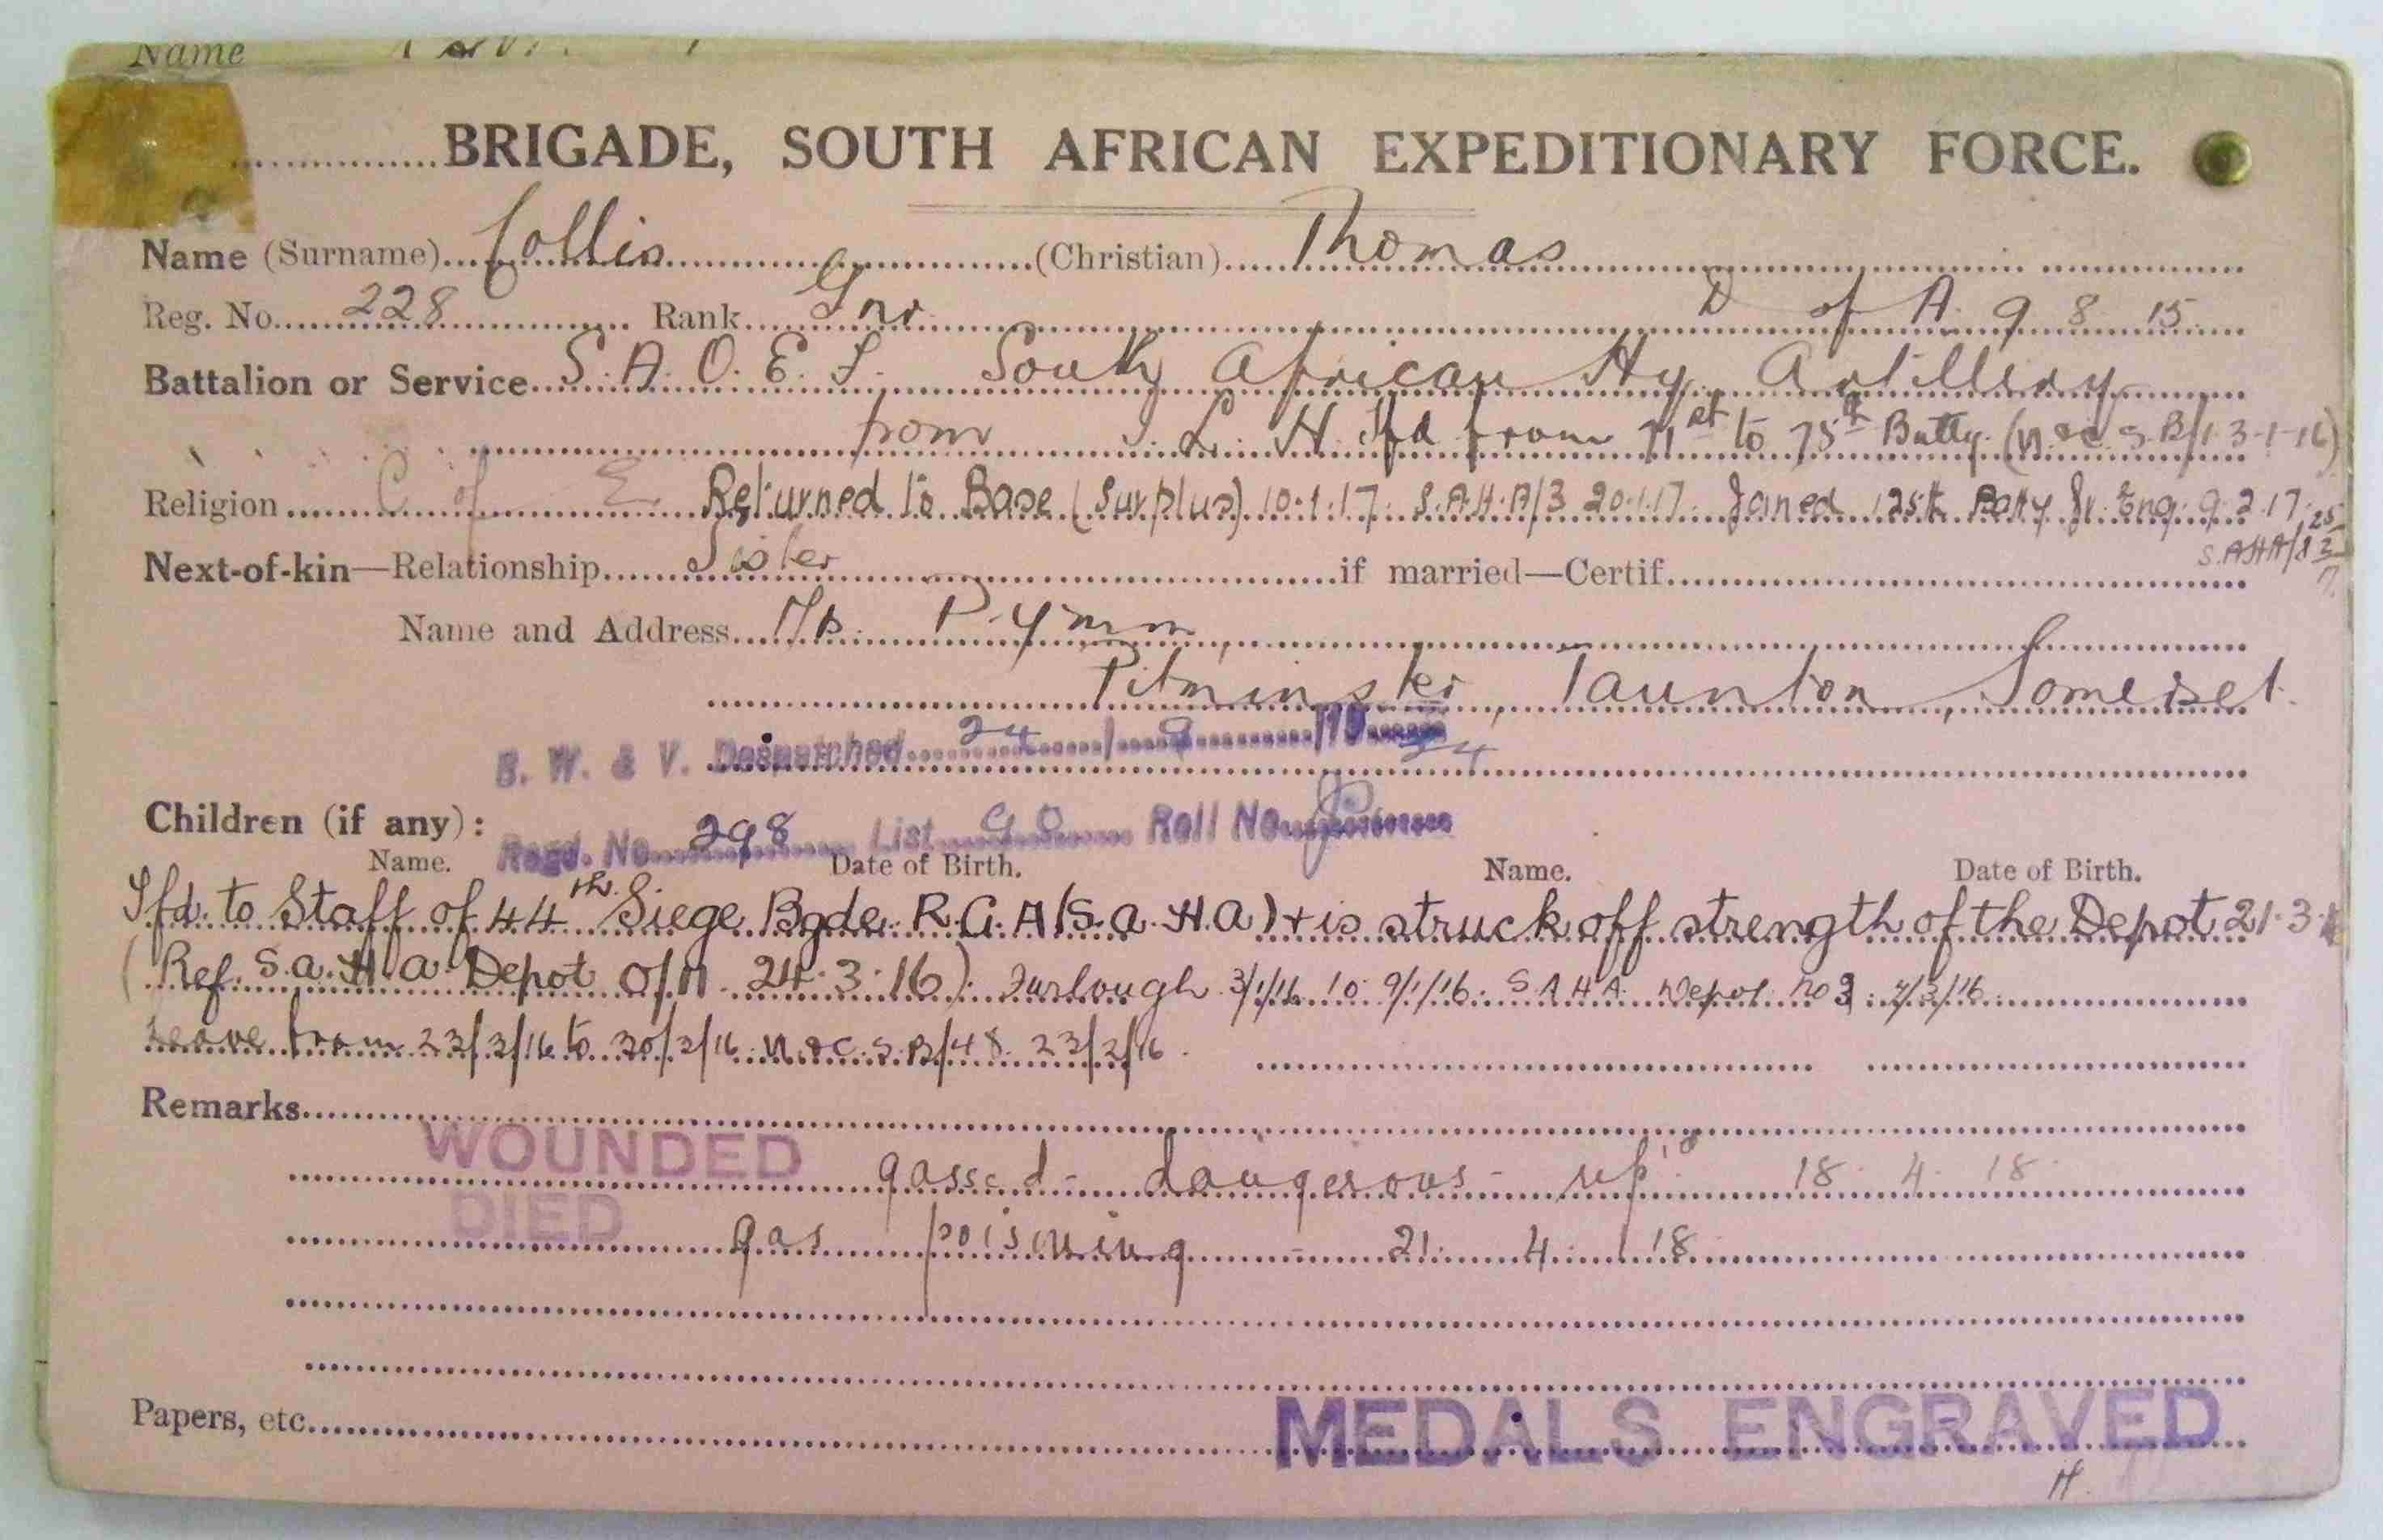 Name
BRIGADE, SOUTH AFRICAN EXPEDITIONARY FORCE.
Name (Surname) Collis (Christian) Thomas
Reg. No. 228 Rank Gnr D of A 9 8 15
Battalion or Service S. A. O. E. F. South African Hy. Artillery
from I. L. H. Tfd from 71st to 75th Batty. (N. & C. S. B/1 3-1-16)
Religion C of E. Returned to Base (Surplus) 10.1.17. S.A.H.A/3 20.1.17. Joined 125th Batty Fr. Eng. 9.2.17. 25
S.AHA/8 2
Next-of-kin—Relationship Sister if married—Certif.
Name and Address Mrs. Pymm,
Pitminster, Taunton, Somerset.
B. W. & V. Despatched 24/9/19 24
Children (if any):
Regd. No. 298 List GO Roll No.
Name. Date of Birth. Name. Date of Birth.
Tfd. to Staff of 44th. Siege Bgde. R.G.A (S.a.H.a) + is struck off strength of the Depot 21.3.
(Ref. S.a.H.a. Depot O/11. 24.3.16). Furlough 3/1/16 to 9/1/16. S A H A. Depot no 3. 4/3/16.
Leave from 23/2/16 to 30/2/16. N. & C. S. B/48. 23/2/16.
Remarks
WOUNDED gassed - dangerous - rep'd 18 4 18
DIED gas poisining - 21. 4. 18
Papers, etc.
MEDALS ENGRAVED
H.